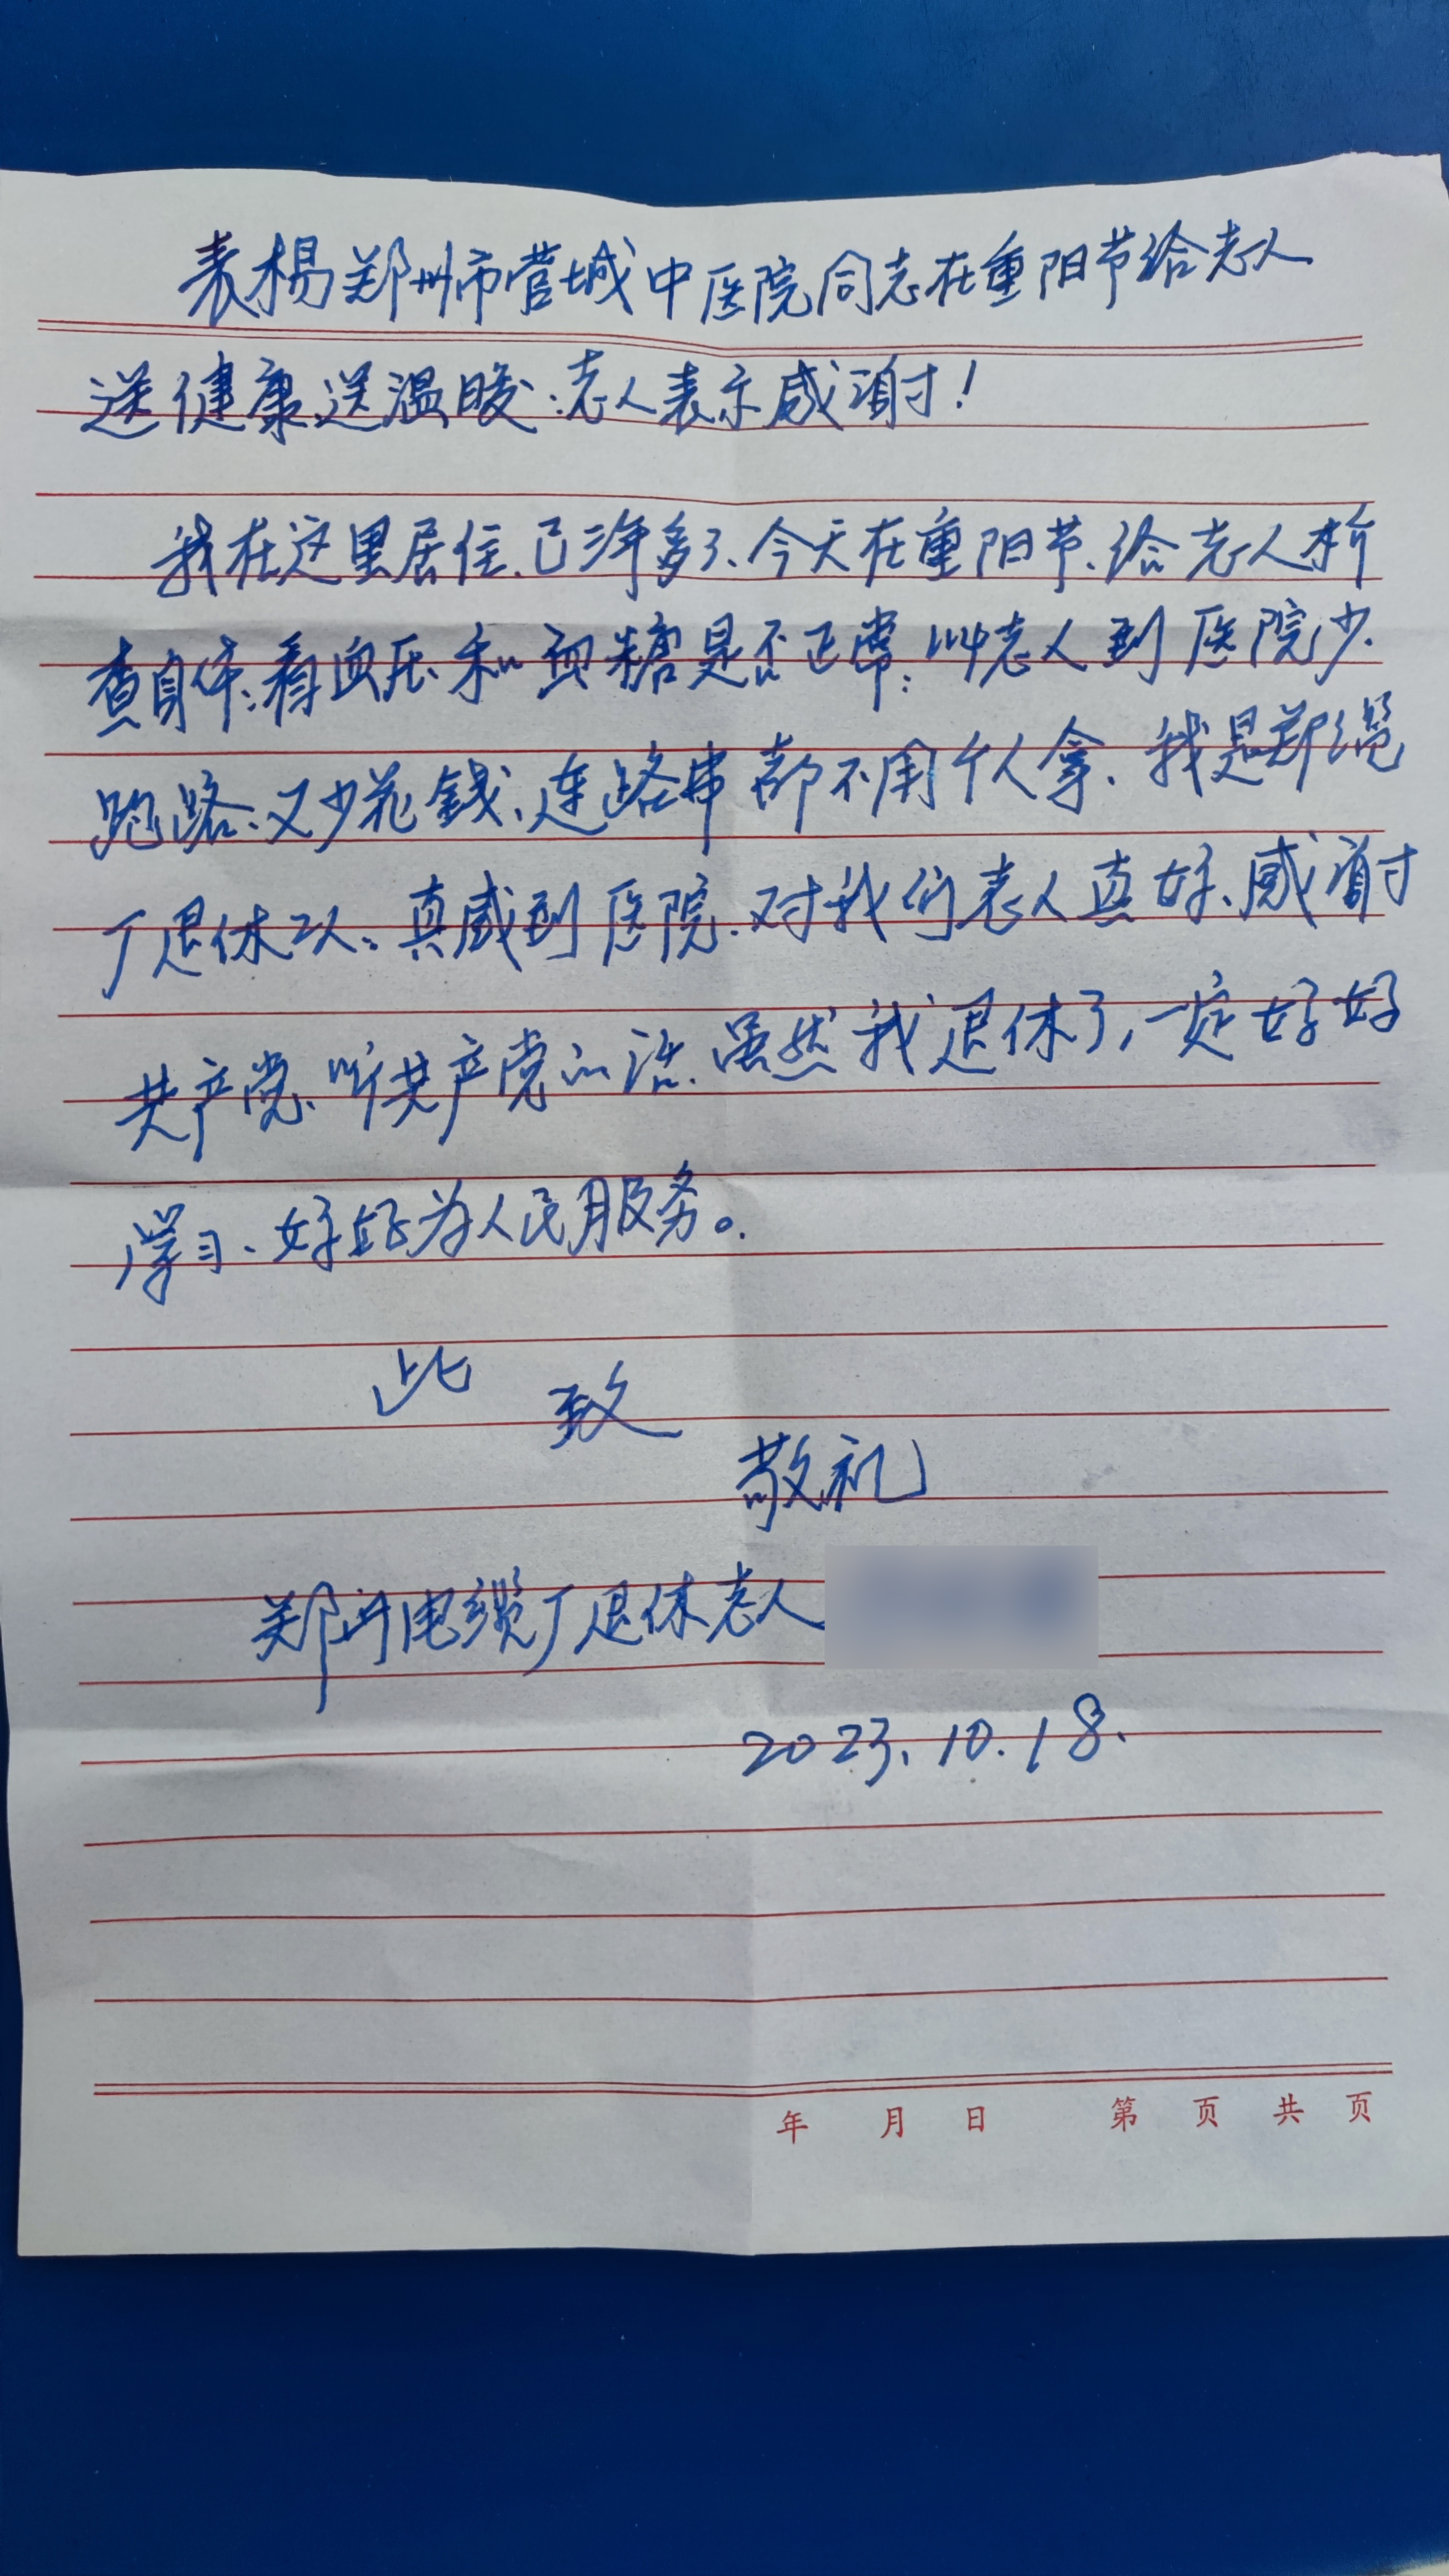 表杨郑州市管城中医院同志在重阳节给老人
送健康、送温暖:老人表示感谢!
我在这里居住、已三年多了、今天在重阳节、给老人检
查身体、看血压、和血糖是否正常;叫老人到医院少
跑路、又少花錢、连路费都不用个人拿、我是郑缆
厂退休工人。真感到医院、对我们老人真好、感谢
共产党、听共产党的话、虽然我退休了,一定好好
学习、好好为人民服务。
此 致
敬礼
郑州电缆厂退休老人
2023.10.18.
年 月 日 第 页 共 页